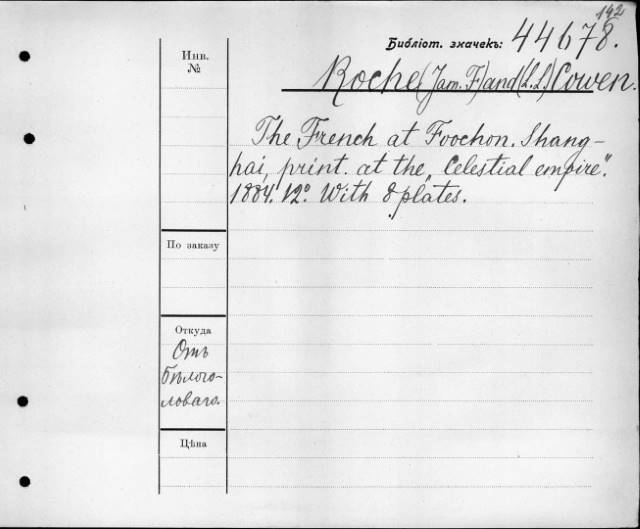 142
Библіот. значекъ: 44678.
Инв.
№
Roche (Jam. F.) and (L.L.) Cowen.
The French at Foochon. Shang-
hai, print. at the „Celestial empire".
1884. 12° With 8 plates.
По заказу
Откуда
Отъ
Бѣлого-
ловаго.
Цѣна